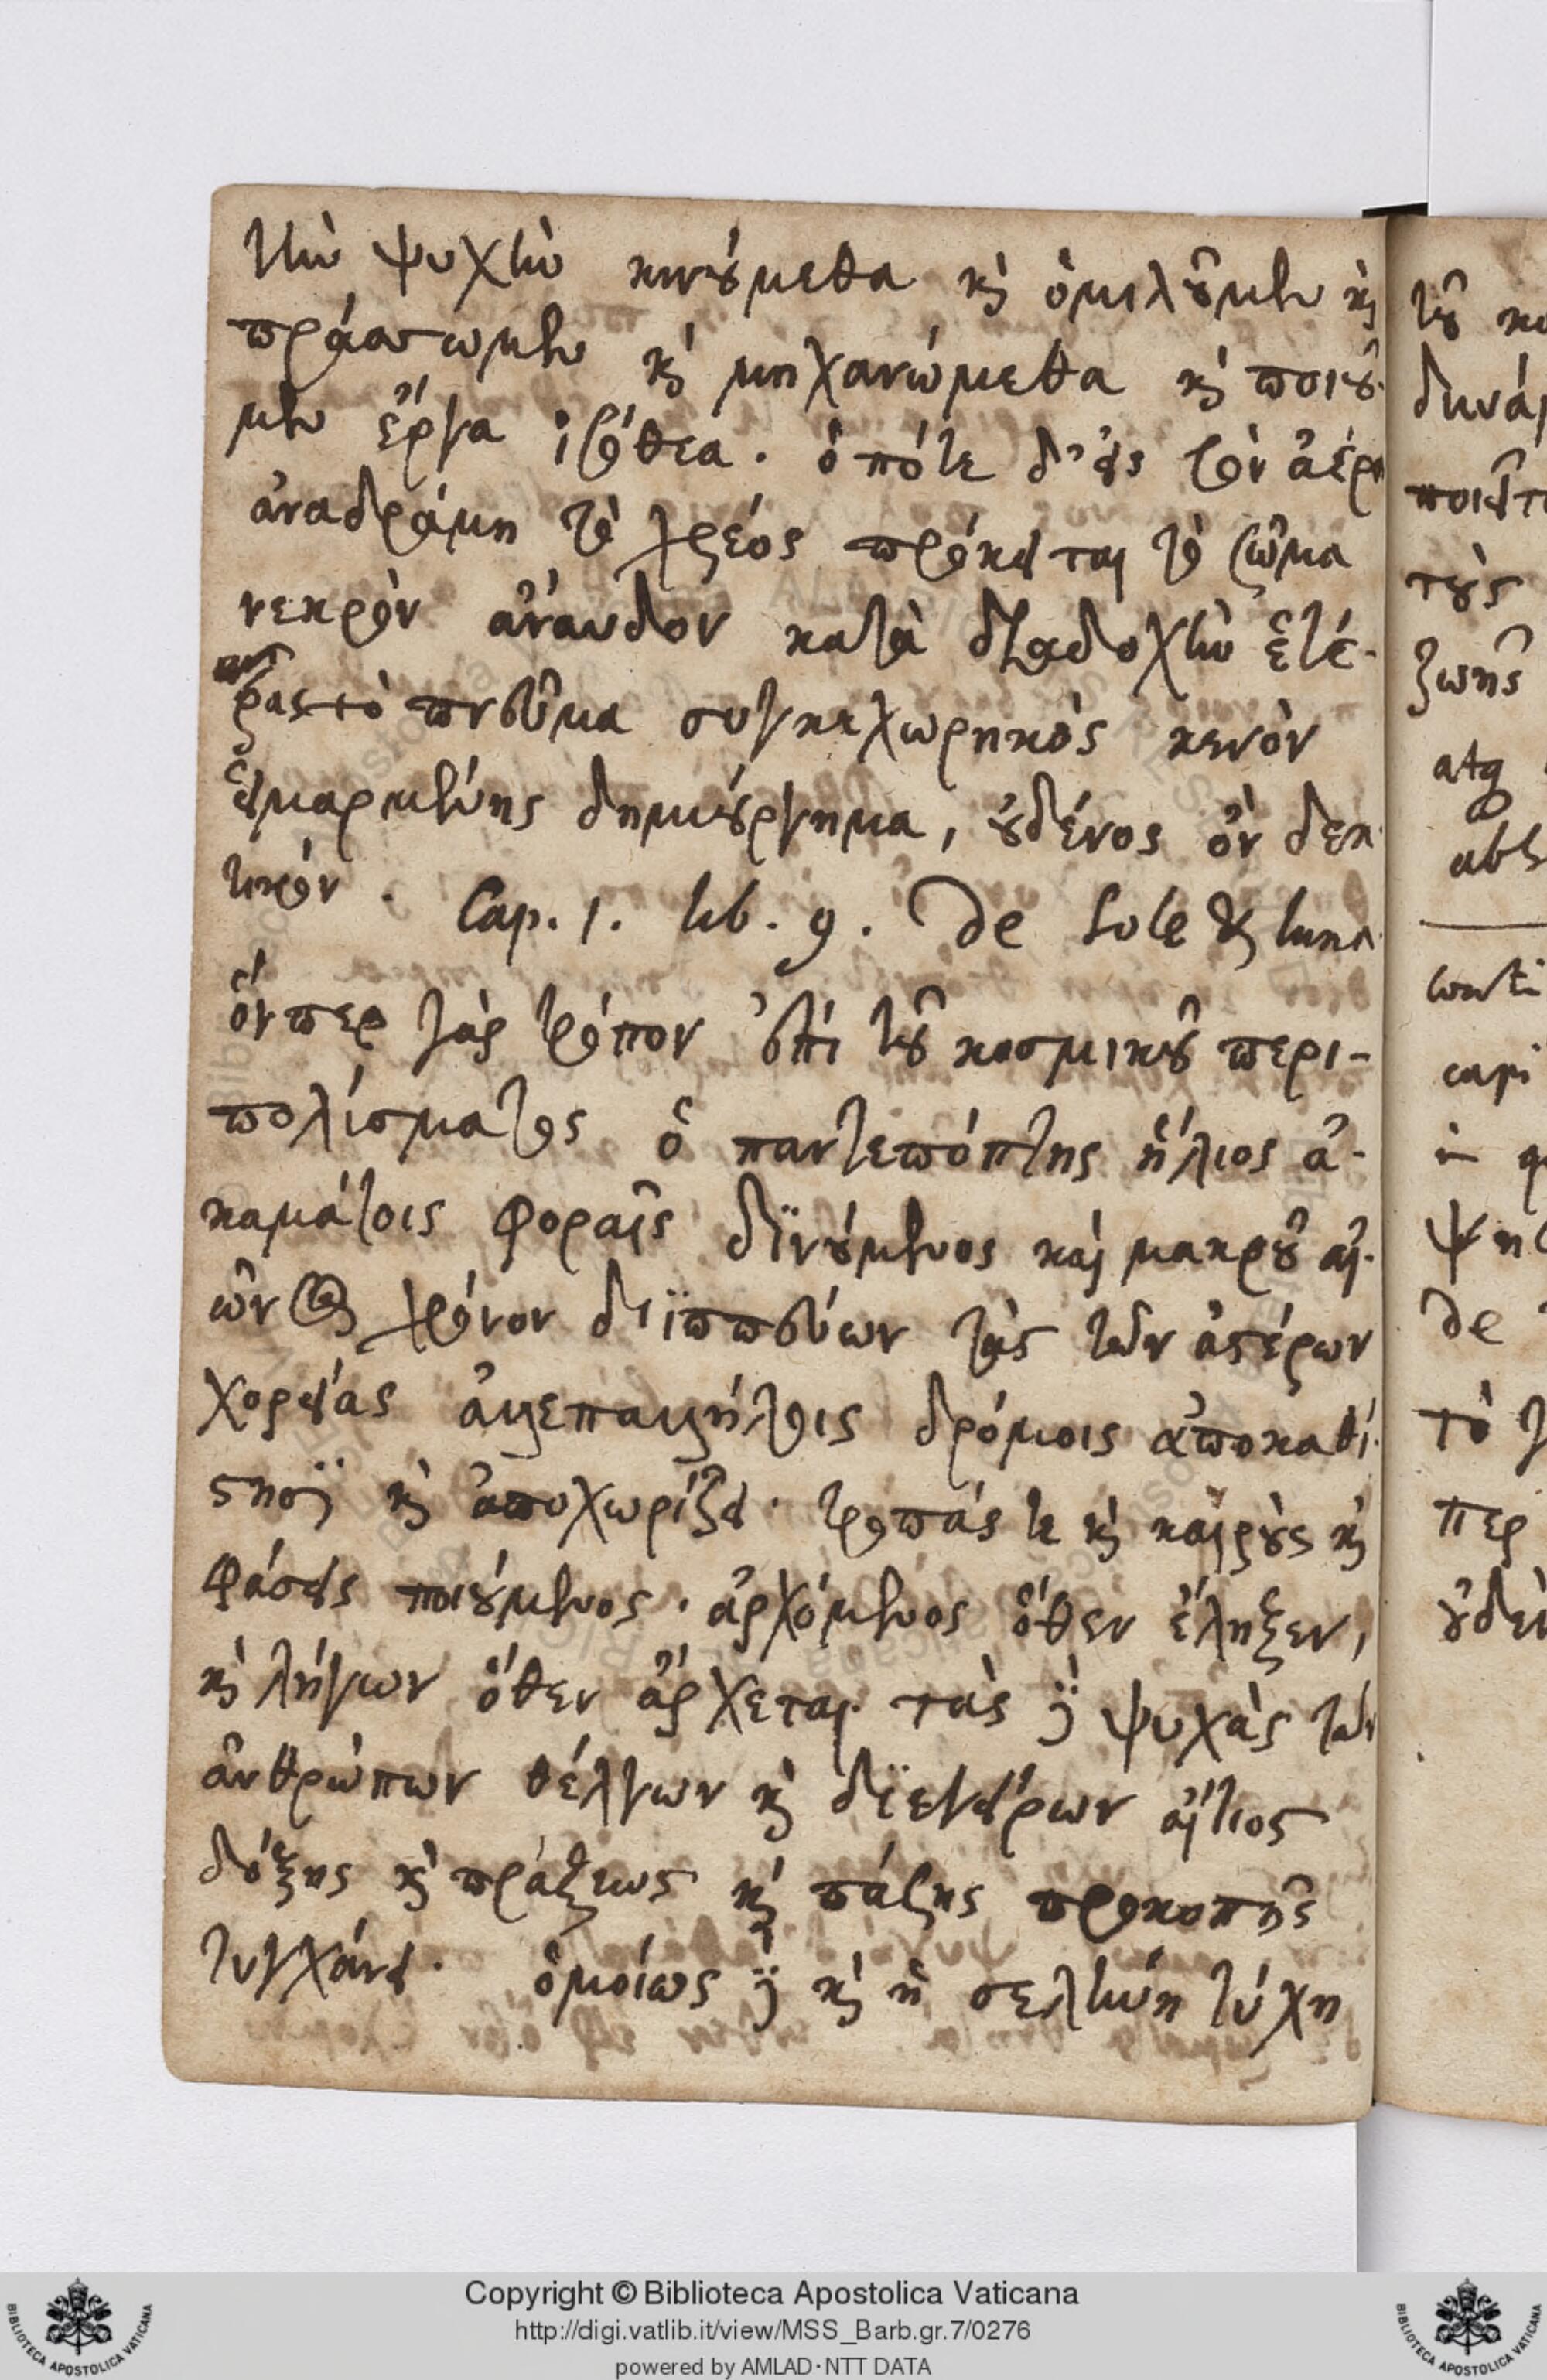 τὴν ψυχὴν κινούμεθα κὶ ὁμιλοῦμεν κὶ
πράσσωμεν κὶ μηχανώμεθα κὶ ποιοῦ-
μεν ἔργα ἰσόθεα. ὁπότε δ' εἰς τὸν ἀέρα
ἀναδράμῃ τὸ χρέος πρόκειται τὸ σῶμα
νεκρὸν ἄναυδον κατὰ διαδοχὴν ἑτέ-
ρας τὸ πνεῦμα συγκεχωρηκὸς κενὸν
εἱμαρμένης δημιούργημα, οὐδένος ὂν δεκ
τικόν. Cap. 1. lib. 9. De Sole & luna
ὅνπερ γὰρ τρόπον ἐπὶ τοῦ κοσμικοῦ περι-
πολίσματος ὁ παντεπόπτης ἥλιος ἀ-
καμάτοις φοραῖς δινούμενος καὶ μακροῦ αἰ-
ῶνος χρόνον διϊππεύων τὰς τῶν ἀστέρων
χορείας ἀνεπαισχήτοις δρόμοις ἀποκαθί-
στησι κὶ ἀποχωρίζει· τροπάς τε κὶ καιροὺς κὶ
φάσεις ποιούμενος. ἀρχόμενος ὅθεν ἔληξεν,
κὶ λήγων ὅθεν ἄρχεται. τὰς δὲ ψυχὰς τῶν
ἀνθρώπων θέλγων κὶ διεγείρων αἴτιος
δόξης κὶ πράξεως κὶ πάσης προκοπῆς
τυγχάνει. ὁμοίως δὲ κὶ ἡ σελήνη τύχη
τοῦ
δυνά
ποιεῖτ
τοὺς
ζωῆς
atq
abs
conti
capi
in
ψη
de
τὸ
περ
οὐδὲν
Copyright © Biblioteca Apostolica Vaticana
http://digi.vatlib.it/view/MSS_Barb.gr.7/0276
powered by AMLAD·NTT DATA
BIBLIOTECA APOSTOLICA VATICANA
BIBLIOTECA APOSTOLICA VATICANA